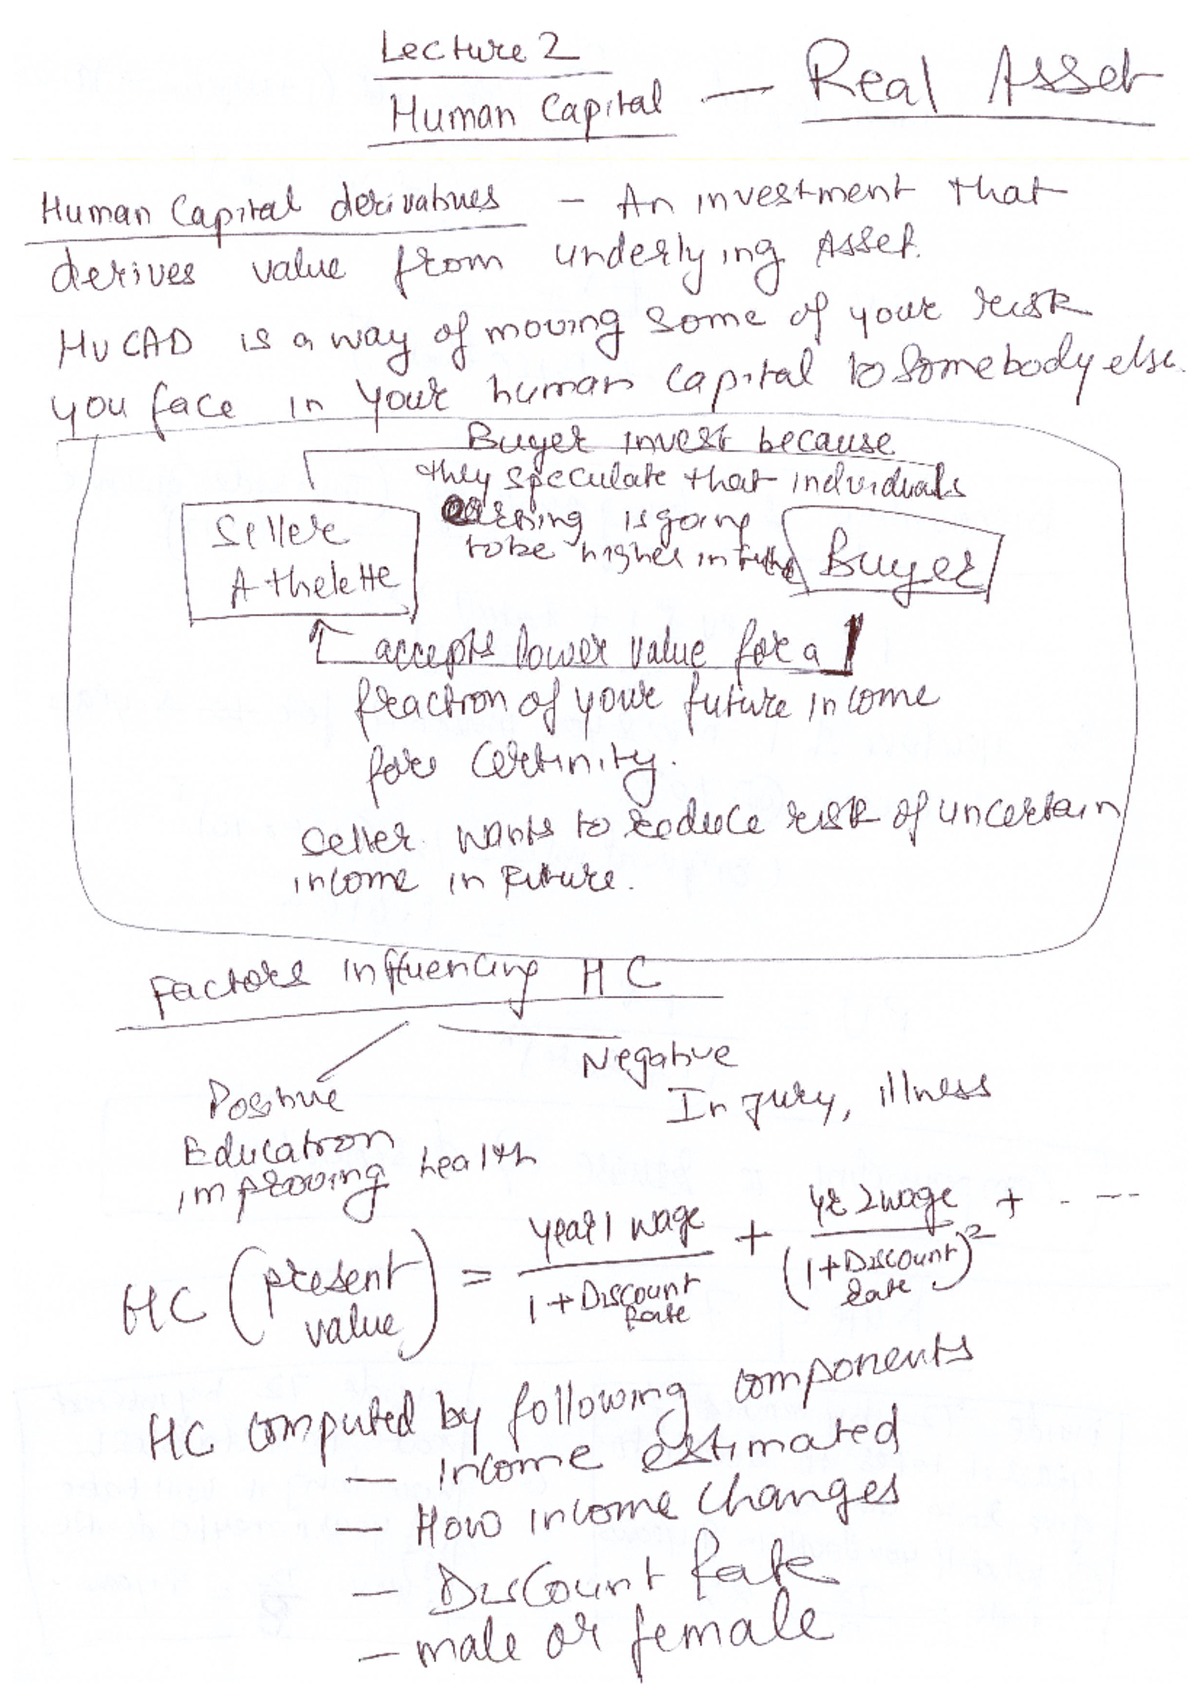 Lecture 2
Human Capital — Real Asset
Human Capital derivatives — An investment that
derives value from underlying Asset.
HUCAD is a way of moving some of your risk
you face in your human capital to somebody else.
Buyer invest because
they speculate that individuals
earning is going
to be higher in future
Seller
Athelette
Buyer
accepts lower value for a
fraction of your future income
for certinity.
Seller wants to reduce risk of uncertain
income in future.
Factors influencing HC
Negative
Injury, illness
Positive
Education
improving health
HC (present value) = year 1 wage / 1 + Discount Rate + yr 2 wage / (1 + Discount Rate)^2 + ----
HC computed by following components
— income estimated
— How income changes
— Discount Rate
— male or female